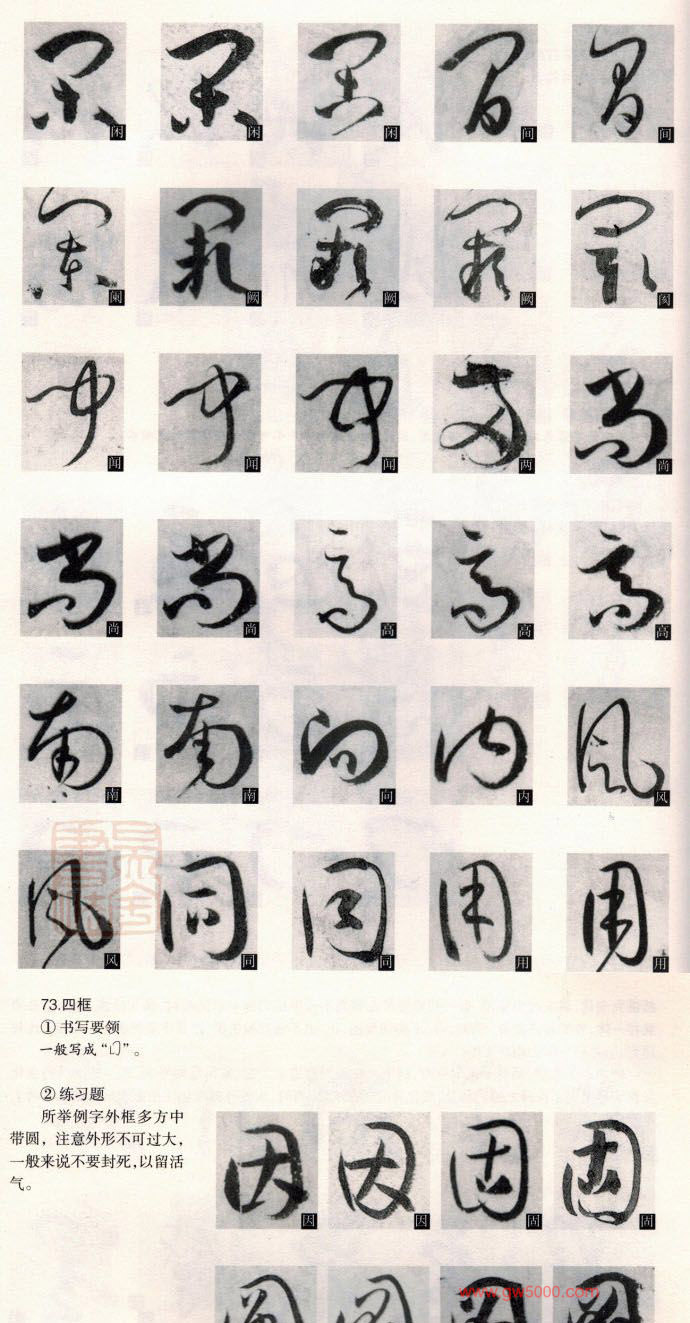 闲 闲 闲 间 间
阑 阙 阙 阙 阂
闻 闻 闻 两 尚
尚 尚 高 高 高
南 南 向 内 风
风 同 同 用 用
73.四框
①书写要领
一般写成“囗”。
②练习题
所举例字外框多方中
带圆，注意外形不可过大，
一般来说不要封死,以留活
气。
因 因 固 固
www.gw5000.com